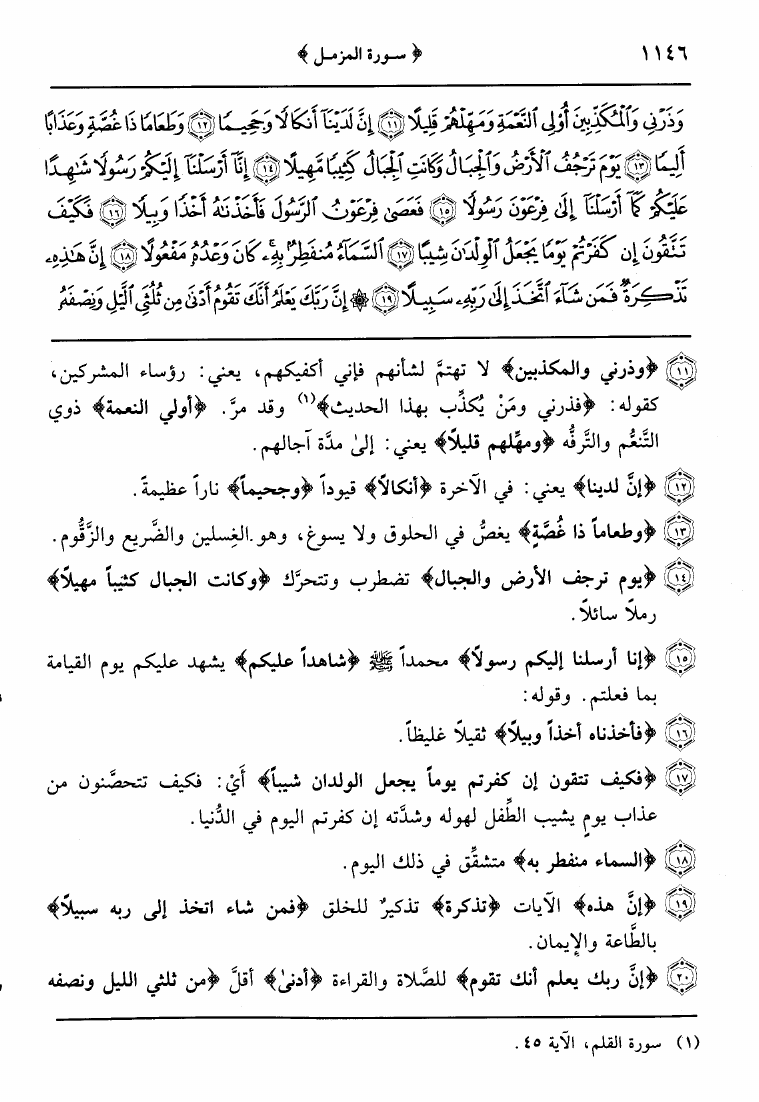 ١١٤٦ ﴿ سورة المزمل ﴾
وَذَرْنِي وَٱلْمُكَذِّبِينَ أُو۟لِي ٱلنَّعْمَةِ وَمَهِّلْهُمْ قَلِيلًا ﴿١١﴾ إِنَّ لَدَيْنَآ أَنكَالًا وَجَحِيمًا ﴿١٢﴾ وَطَعَامًا ذَا غُصَّةٍ وَعَذَابًا
أَلِيمًا ﴿١٣﴾ يَوْمَ تَرْجُفُ ٱلْأَرْضُ وَٱلْجِبَالُ وَكَانَتِ ٱلْجِبَالُ كَثِيبًا مَّهِيلًا ﴿١٤﴾ إِنَّآ أَرْسَلْنَآ إِلَيْكُمْ رَسُولًا شَٰهِدًا
عَلَيْكُمْ كَمَآ أَرْسَلْنَآ إِلَىٰ فِرْعَوْنَ رَسُولًا ﴿١٥﴾ فَعَصَىٰ فِرْعَوْنُ ٱلرَّسُولَ فَأَخَذْنَٰهُ أَخْذًا وَبِيلًا ﴿١٦﴾ فَكَيْفَ
تَتَّقُونَ إِن كَفَرْتُمْ يَوْمًا يَجْعَلُ ٱلْوِلْدَٰنَ شِيبًا ﴿١٧﴾ ٱلسَّمَآءُ مُنفَطِرٌۢ بِهِۦ ۚ كَانَ وَعْدُهُۥ مَفْعُولًا ﴿١٨﴾ إِنَّ هَٰذِهِۦ
تَذْكِرَةٌ ۖ فَمَن شَآءَ ٱتَّخَذَ إِلَىٰ رَبِّهِۦ سَبِيلًا ﴿١٩﴾ ۞ إِنَّ رَبَّكَ يَعْلَمُ أَنَّكَ تَقُومُ أَدْنَىٰ مِن ثُلُثَيِ ٱلَّيْلِ وَنِصْفَهُۥ
١١ ﴿وذرني والمكذبين﴾ لا تهتمَّ لشأنهم فإني أكفيكهم، يعني: رؤساء المشركين،
كقوله: ﴿فذرني ومَنْ يُكذِّب بهذا الحديث﴾(١) وقد مرَّ. ﴿أولي النعمة﴾ ذوي
التَّنعُّم والتَّرفُّه ﴿ومهِّلهم قليلاً﴾ يعني: إلىٰ مدَّة آجالهم.
١٢ ﴿إنَّ لدينا﴾ يعني: في الآخرة ﴿أنكالاً﴾ قيوداً ﴿وجحيماً﴾ ناراً عظيمةً.
١٣ ﴿وطعاماً ذا غُصَّةٍ﴾ يغصُّ في الحلوق ولا يسوغ، وهو الغِسلين والضَّريع والزَّقُّوم.
١٤ ﴿يوم ترجف الأرض والجبال﴾ تضطرب وتتحرَّك ﴿وكانت الجبال كثيباً مهيلاً﴾
رملاً سائلاً.
١٥ ﴿إنا أرسلنا إليكم رسولاً﴾ محمداً ﷺ ﴿شاهداً عليكم﴾ يشهد عليكم يوم القيامة
بما فعلتم. وقوله:
١٦ ﴿فأخذناه أخذاً وبيلاً﴾ ثقيلاً غليظاً.
١٧ ﴿فكيف تتقون إن كفرتم يوماً يجعل الولدان شيباً﴾ أَيْ: فكيف تتحصَّنون من
عذاب يومٍ يشيب الطِّفل لهوله وشدَّته إن كفرتم اليوم في الدُّنيا.
١٨ ﴿السماء منفطر به﴾ متشقِّق في ذلك اليوم.
١٩ ﴿إنَّ هذه﴾ الآيات ﴿تذكرة﴾ تذكيرٌ للخلق ﴿فمن شاء اتخذ إلى ربه سبيلاً﴾
بالطَّاعة والإِيمان.
٢٠ ﴿إنَّ ربك يعلم أنك تقوم﴾ للصَّلاة والقراءة ﴿أدنىٰ﴾ أقلَّ ﴿من ثلثي الليل ونصفه
(١) سورة القلم، الآية ٤٥.